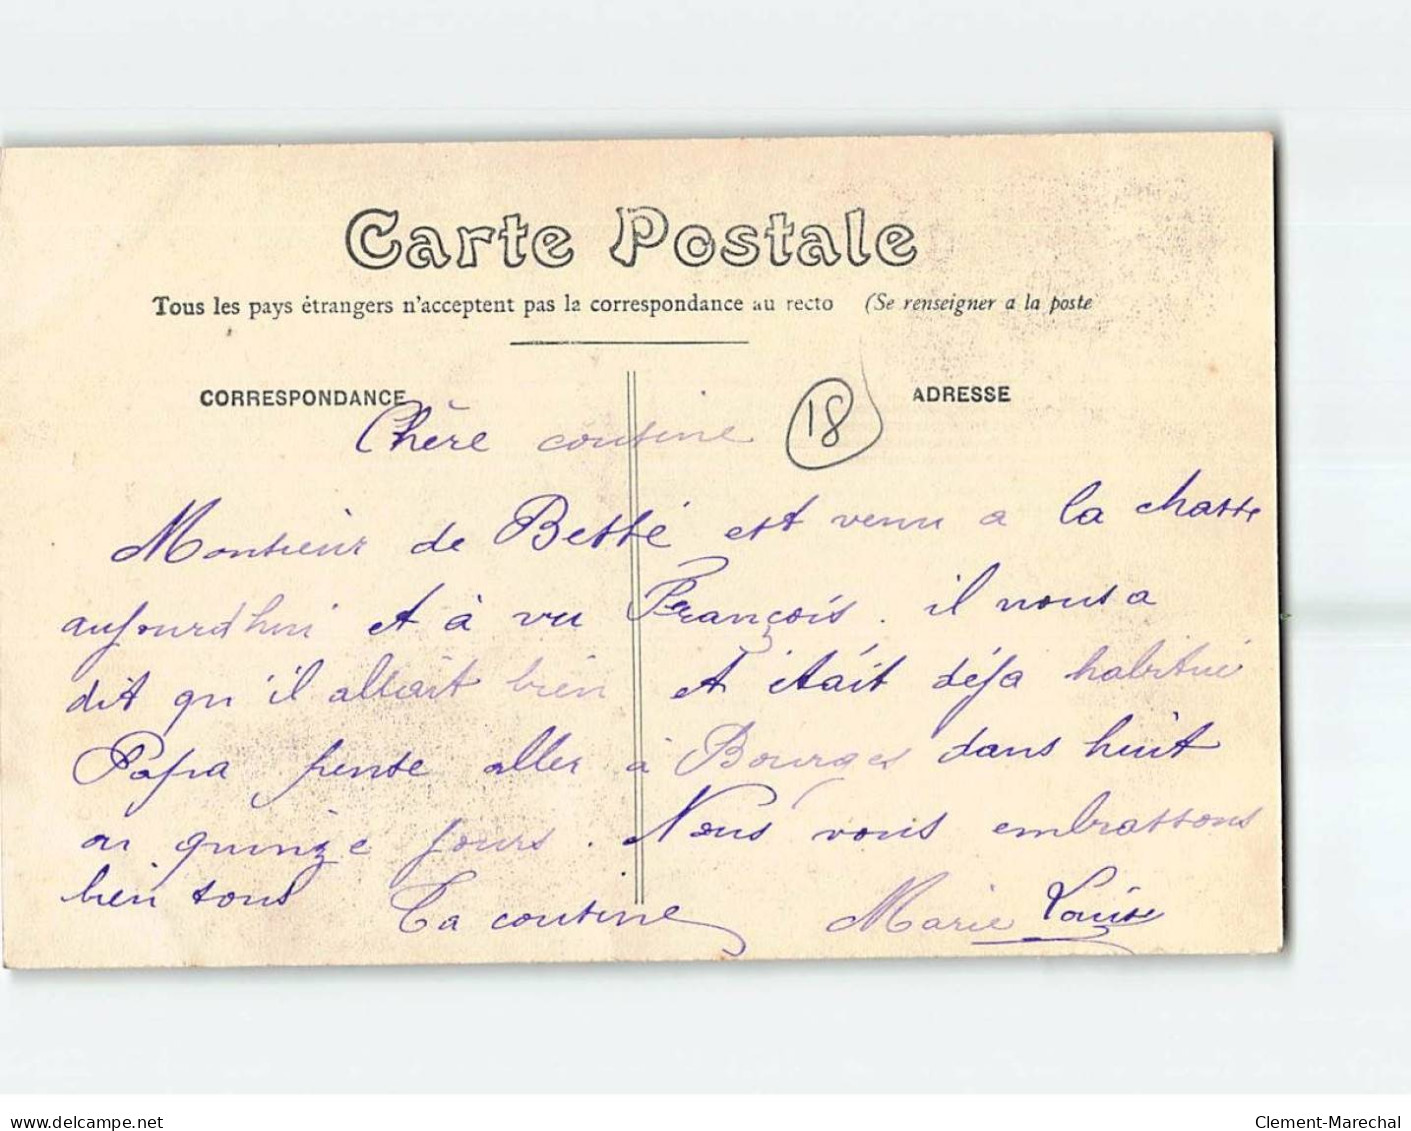 Carte Postale
Tous les pays étrangers n'acceptent pas la correspondance au recto (Se renseigner a la poste
CORRESPONDANCE
ADRESSE
18
Chère cousine
Monsieur de Bessé est venu a la chasse
aujourd'hui et à vu François. il nous a
dit qu'il allait bien et était déja habitué
Papa pense aller à Bourges dans huit
ou quinze jours. Nous vous embrassons
bien tous Ta cousine Marie Louise
delcampe.net
Clement-Marechal